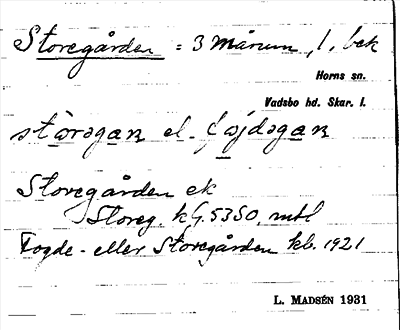 Storegården = 3 Mårum, l. bek
Horns sn.
Vadsbo hd. Skar. l.
stɷrəgaʀ el. fɷjdəgaʀ
Storegården ek
Storeg. kG. 5350, mtl
Fogde- eller Storegården kb. 1921
L. MADSÉN 1931